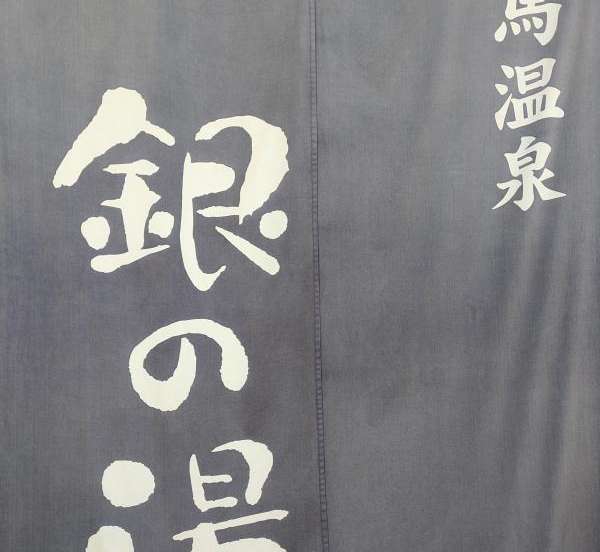 馬温泉
銀の湯